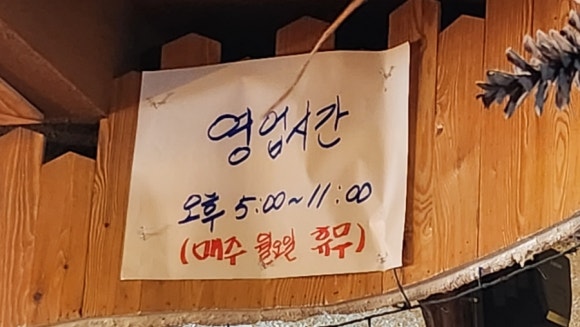 영업시간
오후 5:00~11:00
(매주 월요일 휴무)